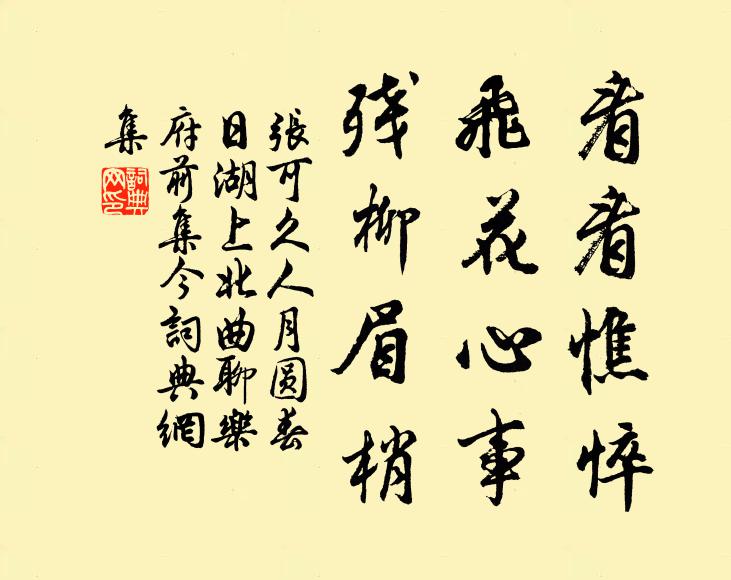 看看憔悴
飛花心事
残柳眉梢
張可久人月圆春
日湖上北曲聊樂
府前集今詞典網
集
詞典
网印